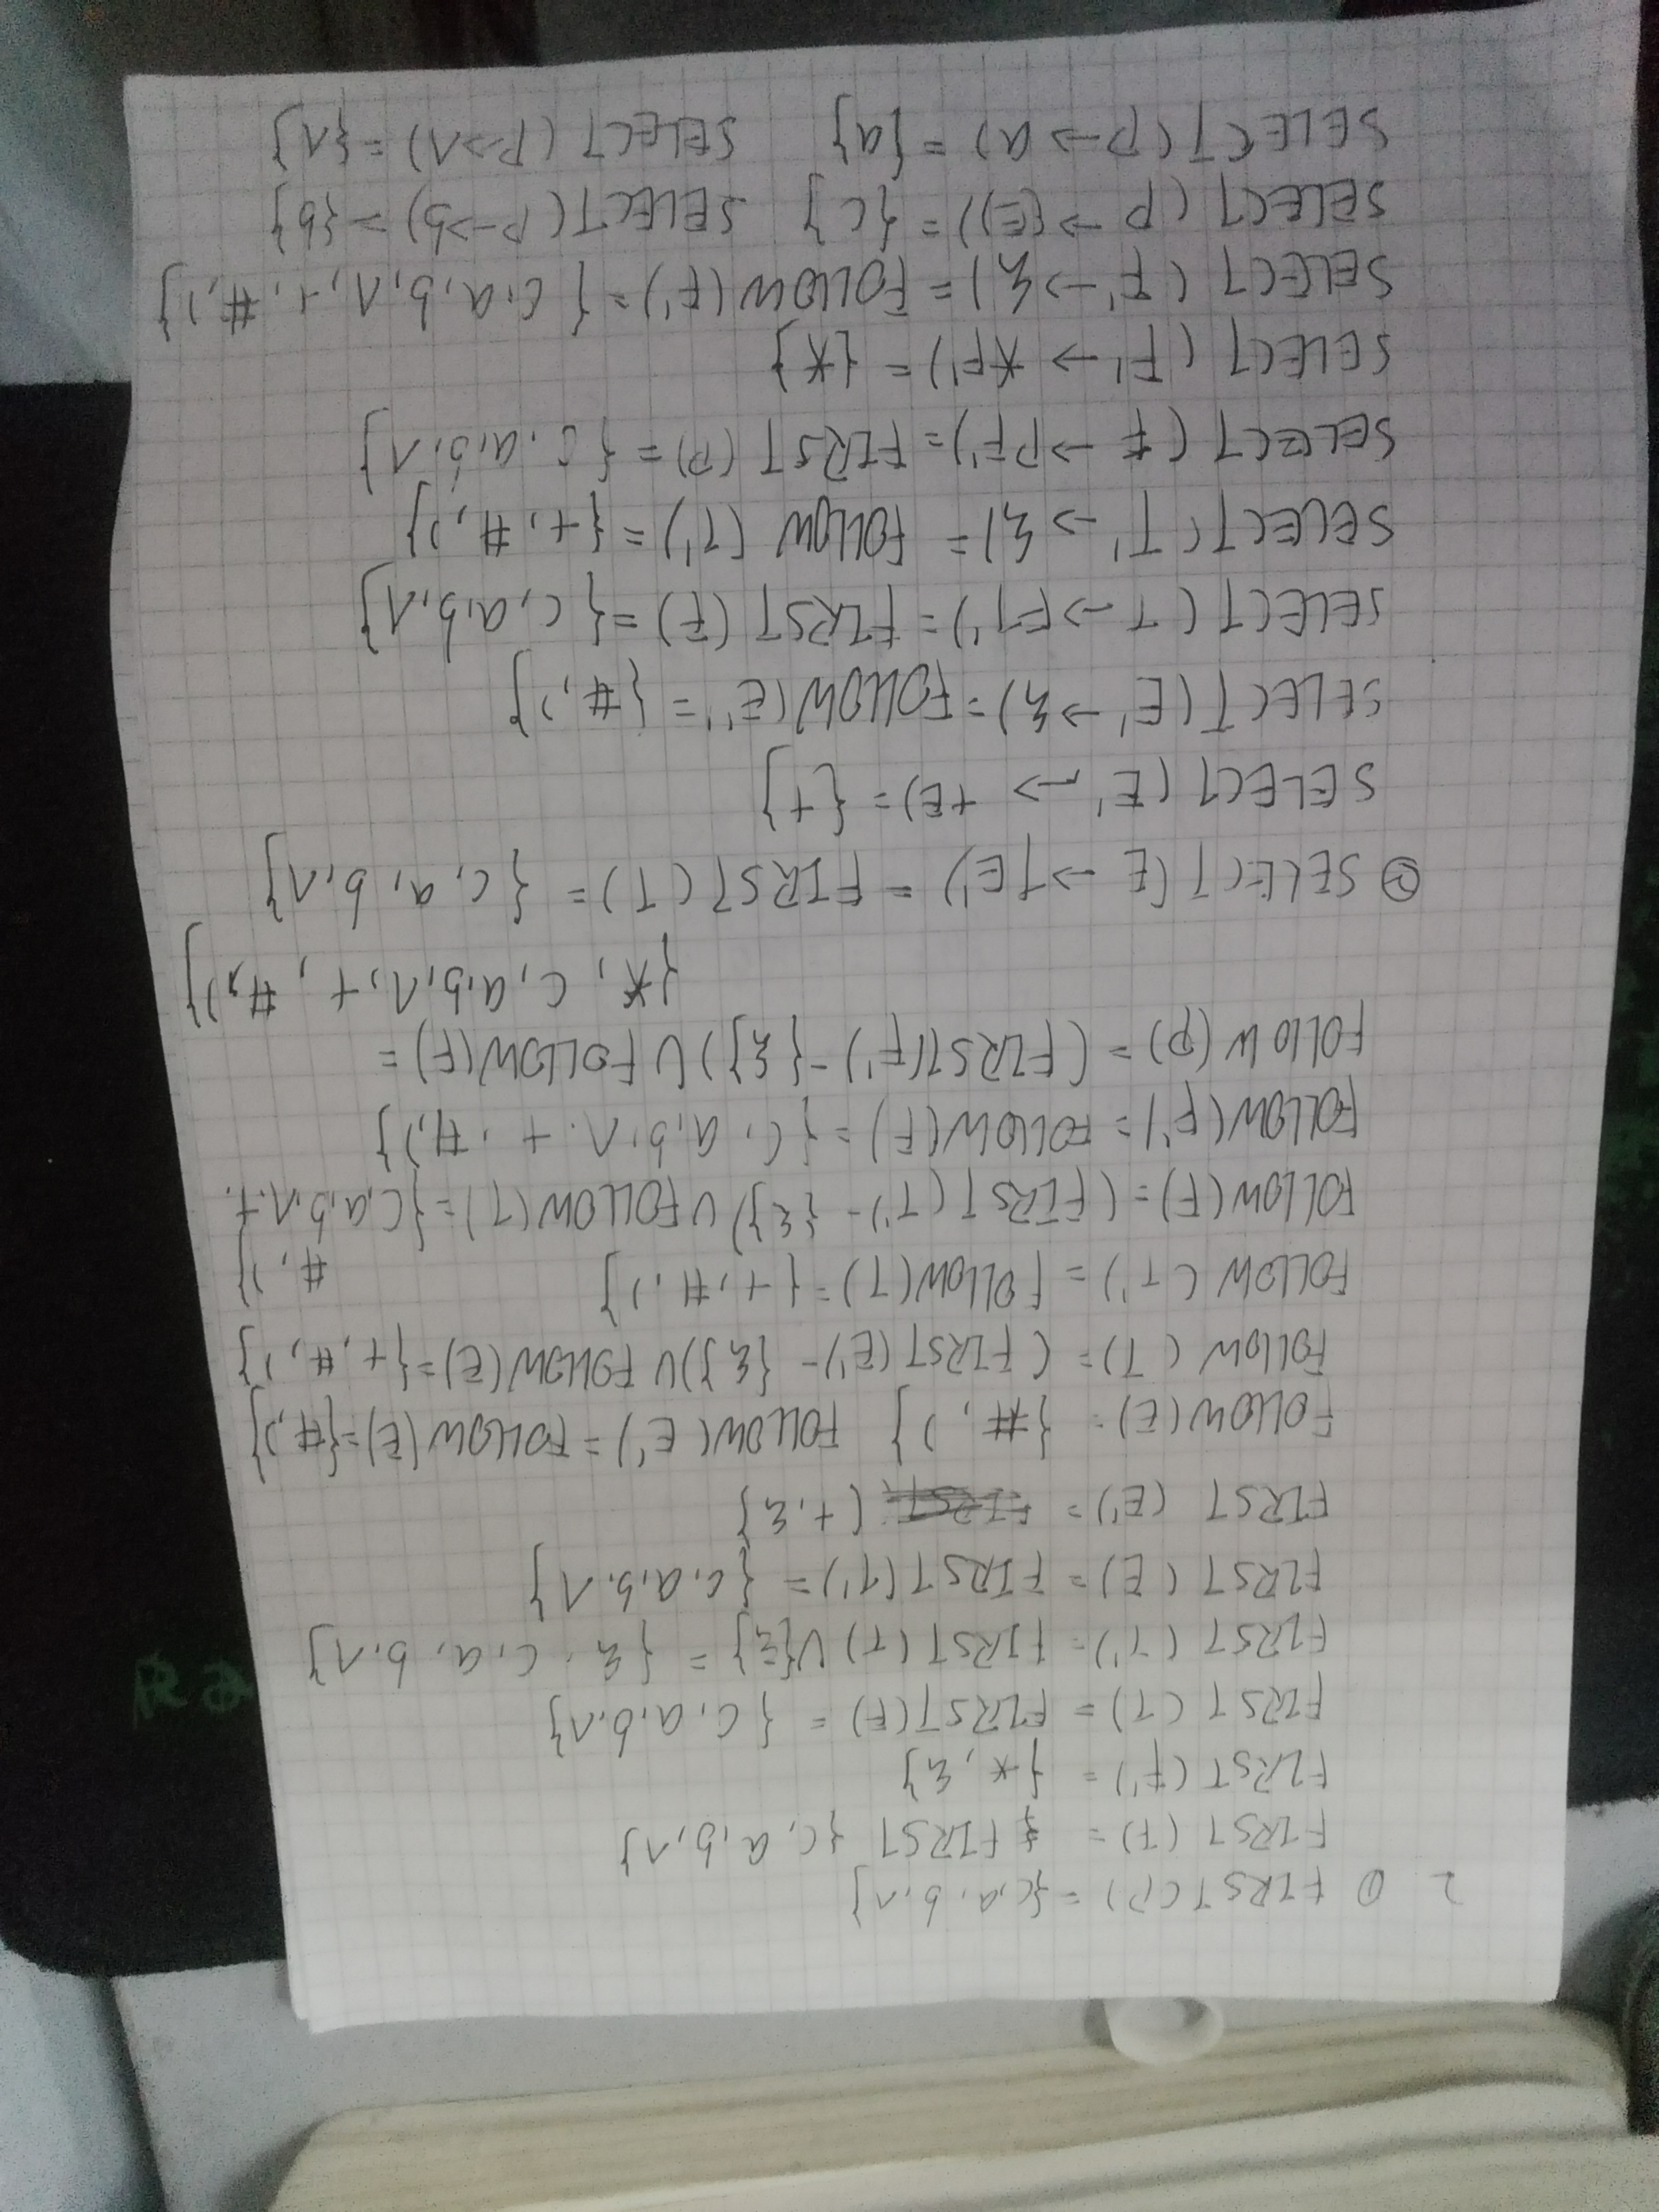 2 ① FIRST(P) = {(, a, b, ∧}
FIRST(F) = FIRST {(, a, b, ∧}
FIRST(F') = {*, ε}
FIRST(T) = FIRST(F) = {(, a, b, ∧}
FIRST(T') = FIRST(T) ∪ {ε} = {ε, (, a, b, ∧}
FIRST(E) = FIRST(T') = {(, a, b, ∧}
FIRST(E') = {+, ε}
FOLLOW(E) = {#, )} FOLLOW(E') = FOLLOW(E) = {#, )}
FOLLOW(T) = (FIRST(E') - {ε}) ∪ FOLLOW(E) = {+, #, )}
FOLLOW(T') = FOLLOW(T) = {+, #, )}
FOLLOW(F) = (FIRST(T') - {ε}) ∪ FOLLOW(T) = {(, a, b, ∧, +, #, )}
FOLLOW(F') = FOLLOW(F) = {(, a, b, ∧, +, #, )}
FOLLOW(P) = (FIRST(F') - {ε}) ∪ FOLLOW(F) =
{*, (, a, b, ∧, +, #, )}
② SELECT(E → TE') = FIRST(T) = {(, a, b, ∧}
SELECT(E' → +E) = {+}
SELECT(E' → ε) = FOLLOW(E' = {#, )}
SELECT(T → FT') = FIRST(F) = {(, a, b, ∧}
SELECT(T' → ε) = FOLLOW(T') = {+, #, )}
SELECT(F → PF') = FIRST(P) = {(, a, b, ∧}
SELECT(F' → *F') = {*}
SELECT(F' → ε) = FOLLOW(F') = {(, a, b, ∧, +, #, )}
SELECT(P → (E)) = {(} SELECT(P → b) = {b}
SELECT(P → a) = {a} SELECT(P → ∧) = {∧}